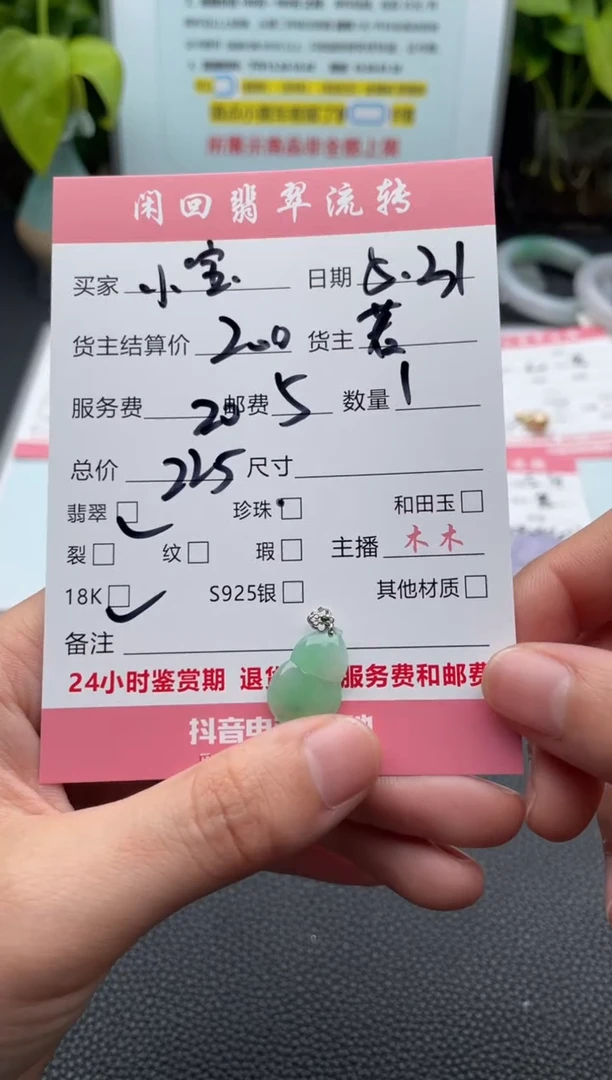 闲回翡翠流转
买家 小宝 日期 5.21
货主结算价 200 货主
服务费 20 邮费 5 数量 1
总价 225 尺寸
翡翠 珍珠 和田玉
裂 纹 瑕 主播 木木
18K S925银 其他材质
备注
24小时鉴赏期 退 服务费和邮费
抖音电